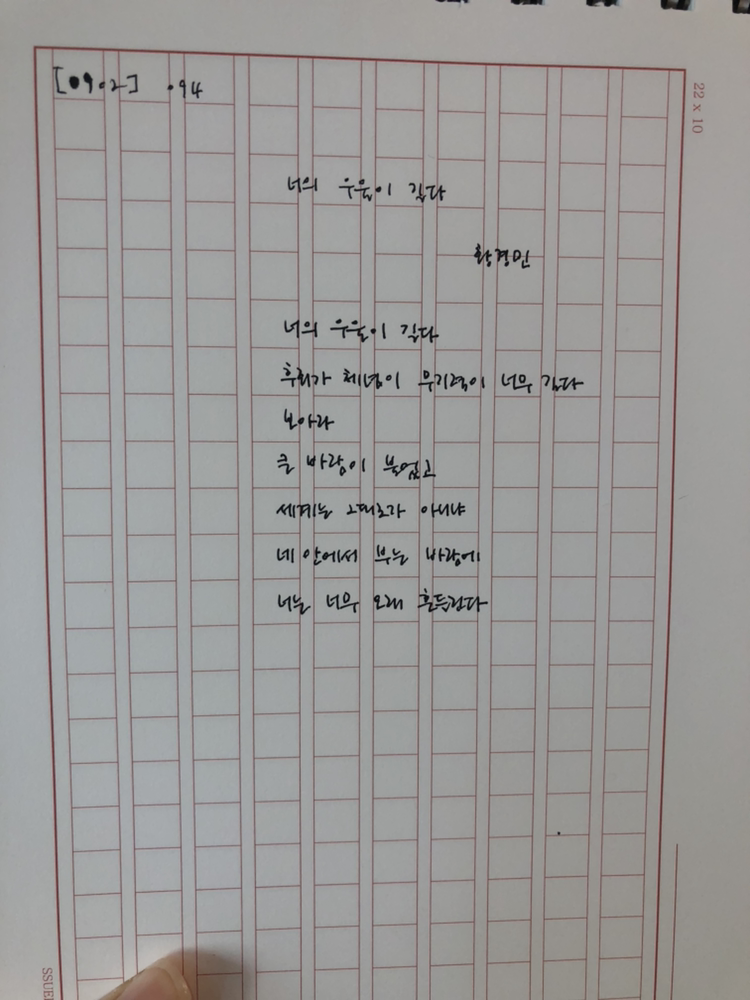 [09.2] .94
22 x 10
너의 우울이 길다
황경민
너의 우울이 길다
후회가 체념이 무기력이 너무 길다
보아라
큰 바람이 불었고
세계는 그대로가 아니냐
네 안에서 부는 바람에
너는 너무 오래 흔들린다